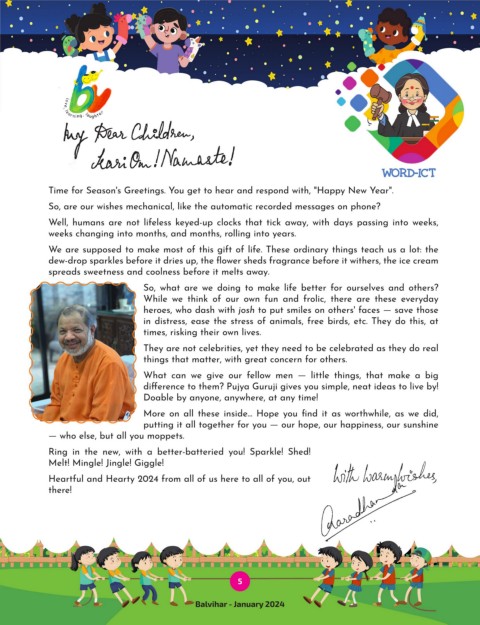 bv
My Dear Children,
Hari Om! Namaste!
WORD-ICT
Time for Season's Greetings. You get to hear and respond with, "Happy New Year".
So, are our wishes mechanical, like the automatic recorded messages on phone?
Well, humans are not lifeless keyed-up clocks that tick away, with days passing into weeks,
weeks changing into months, and months, rolling into years.
We are supposed to make most of this gift of life. These ordinary things teach us a lot: the
dew-drop sparkles before it dries up, the flower sheds fragrance before it withers, the ice cream
spreads sweetness and coolness before it melts away.
So, what are we doing to make life better for ourselves and others?
While we think of our own fun and frolic, there are these everyday
heroes, who dash with josh to put smiles on others' faces — save those
in distress, ease the stress of animals, free birds, etc. They do this, at
times, risking their own lives.
They are not celebrities, yet they need to be celebrated as they do real
things that matter, with great concern for others.
What can we give our fellow men — little things, that make a big
difference to them? Pujya Guruji gives you simple, neat ideas to live by!
Doable by anyone, anywhere, at any time!
More on all these inside... Hope you find it as worthwhile, as we did,
putting it all together for you — our hope, our happiness, our sunshine
— who else, but all you moppets.
Ring in the new year, with a better-batteried you! Sparkle! Shed!
Melt! Mingle! Jingle! Giggle!
Heartful and Hearty 2024 from all of us here to all of you, out
there!
With warm wishes,
5
Balvihar - January 2024